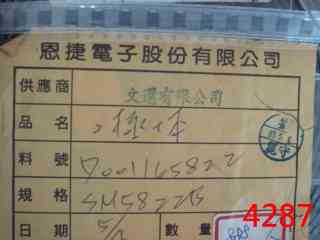 恩捷電子股份有限公司
供應商 文選有限公司
品名 二極体
料號 D001165822
規格 SM5822B
日期 5/2 數量
4287